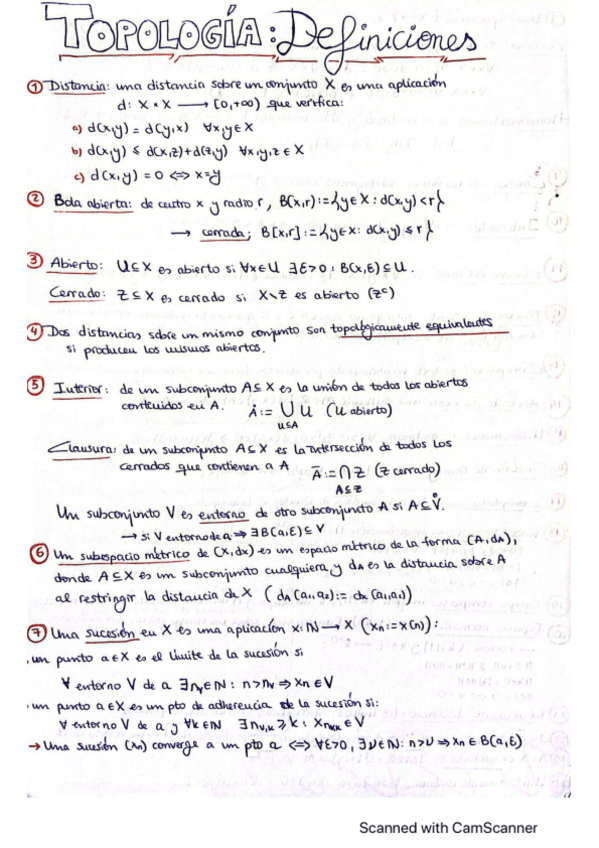 TOPOLOGÍA: Definiciones
① Distancia: una distancia sobre un conjunto X es una aplicación
d: X × X → [0,+∞) que verifica:
a) d(x,y) = d(y,x) ∀x,y∈X
b) d(x,y) ≤ d(x,z)+d(z,y) ∀x,y,z ∈ X
c) d(x,y) = 0 ⟺ x=y
② Bola abierta: de centro x y radio r, B(x,r):={y∈X : d(x,y)<r}
→ cerrada; B[x,r]:={y∈X: d(x,y)≤r}
③ Abierto: U⊆X es abierto si ∀x∈U ∃ε>0 : B(x,ε)⊆U.
Cerrado: Z⊆X es cerrado si X∖Z es abierto (Zᶜ)
④ Dos distancias sobre un mismo conjunto son topológicamente equivalentes
si producen los mismos abiertos.
⑤ Interior: de un subconjunto A⊆X es la unión de todos los abiertos
contenidos en A. Å:= ∪U (U abierto)
U⊆A
Clausura: de un subconjunto A⊆X es la intersección de todos los
cerrados que contienen a A Ā:=∩Z (Z cerrado)
A⊆Z
Un subconjunto V es entorno de otro subconjunto A si A⊆V̊.
→ si V entorno de a ⇒ ∃B(a,ε)⊆V
⑥ Un subespacio métrico de (X,dx) es un espacio métrico de la forma (A,dA),
donde A⊆X es un subconjunto cualquiera y dA es la distancia sobre A
al restringir la distancia de X (dA(a₁,a₂):= dx(a₁,a₂))
⑦ Una sucesión en X es una aplicación x:ℕ→X (xn:=x(n)):
. un punto a∈X es el límite de la sucesión si
∀ entorno V de a ∃nv∈ℕ: n>nv ⇒ xn∈V
. un punto a∈X es un pto de adherencia de la sucesión si:
∀ entorno V de a y ∀k∈ℕ ∃nv,k ≥ k : xnv,k ∈V
→ Una sucesión (xn) converge a un pto a ⟺ ∀ε>0, ∃ν∈ℕ: n>ν ⇒ xn∈B(a,ε)
Scanned with CamScanner